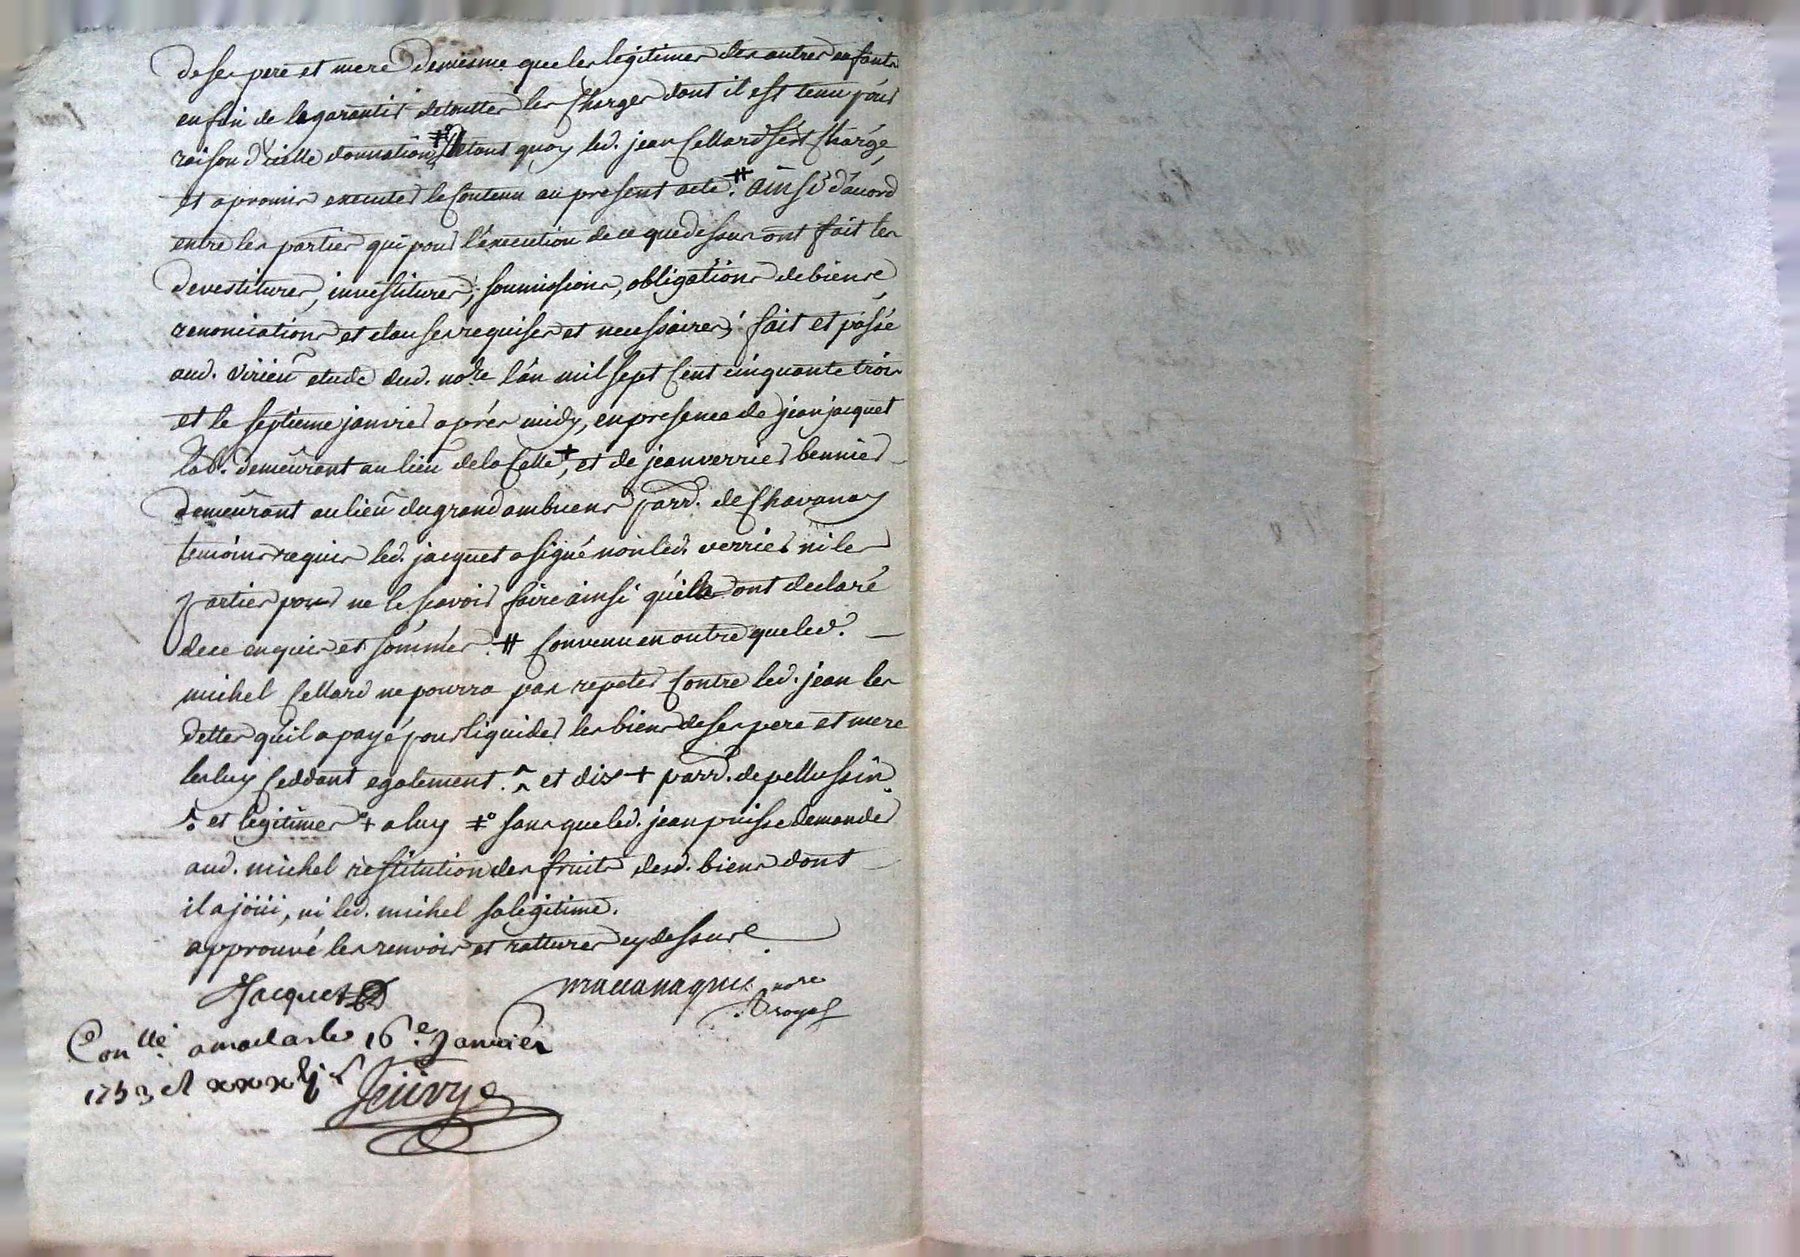 de ses pere et mere de mesme que les legitimes des autres enfants
enfin de la garantir de toutter les Charges dont il est tenu pour
raison d'icelle donnation ⁜ de tout quoy led. jean Cellard s'est Chargé
et a promis executer le Contenu au present acte. # ainsi d'acord
entre les parties qui pour l'execution de ce que dessus ont fait les
devestitures, investitures, soumissions, obligations de biens
renonciations et clauses requises et necessaires; fait et passé
aud. virieu etude dud. no.re l'an mil sept Cent cinquante trois
et le septieme janvier aprés midy, en presence de jean jacquet
lab.r demeurant au lieu de la Celle +, et de jean verrier bennier
demeurant au lieu du grand ambuens parr. de Chavanay
temoins requis led. jacquet a signé non led. verrier ni les
parties pour ne le scavoir faire ainsi qu'ils ont declaré
de ce enquis et sommés. # Convenu en outre que led.
michel Cellard ne pourra pas repeter Contre led. jean les
dettes qu'il a payé pour liquider les biens de ses pere et mere
les luy Ceddant egalement. ^ et dix + parr. de pellussin
^. et legitimes °+ a luy ‡° sans que led. jean puisse demander
aud. michel restitution des fruits desd. biens dont
il a joüi, ni led. michel sa legitime.
approuvé les renvois et rattures cy dessus
Jacquet
no.re
royal
Con.llé a maclas le 16.e Janvier
1753